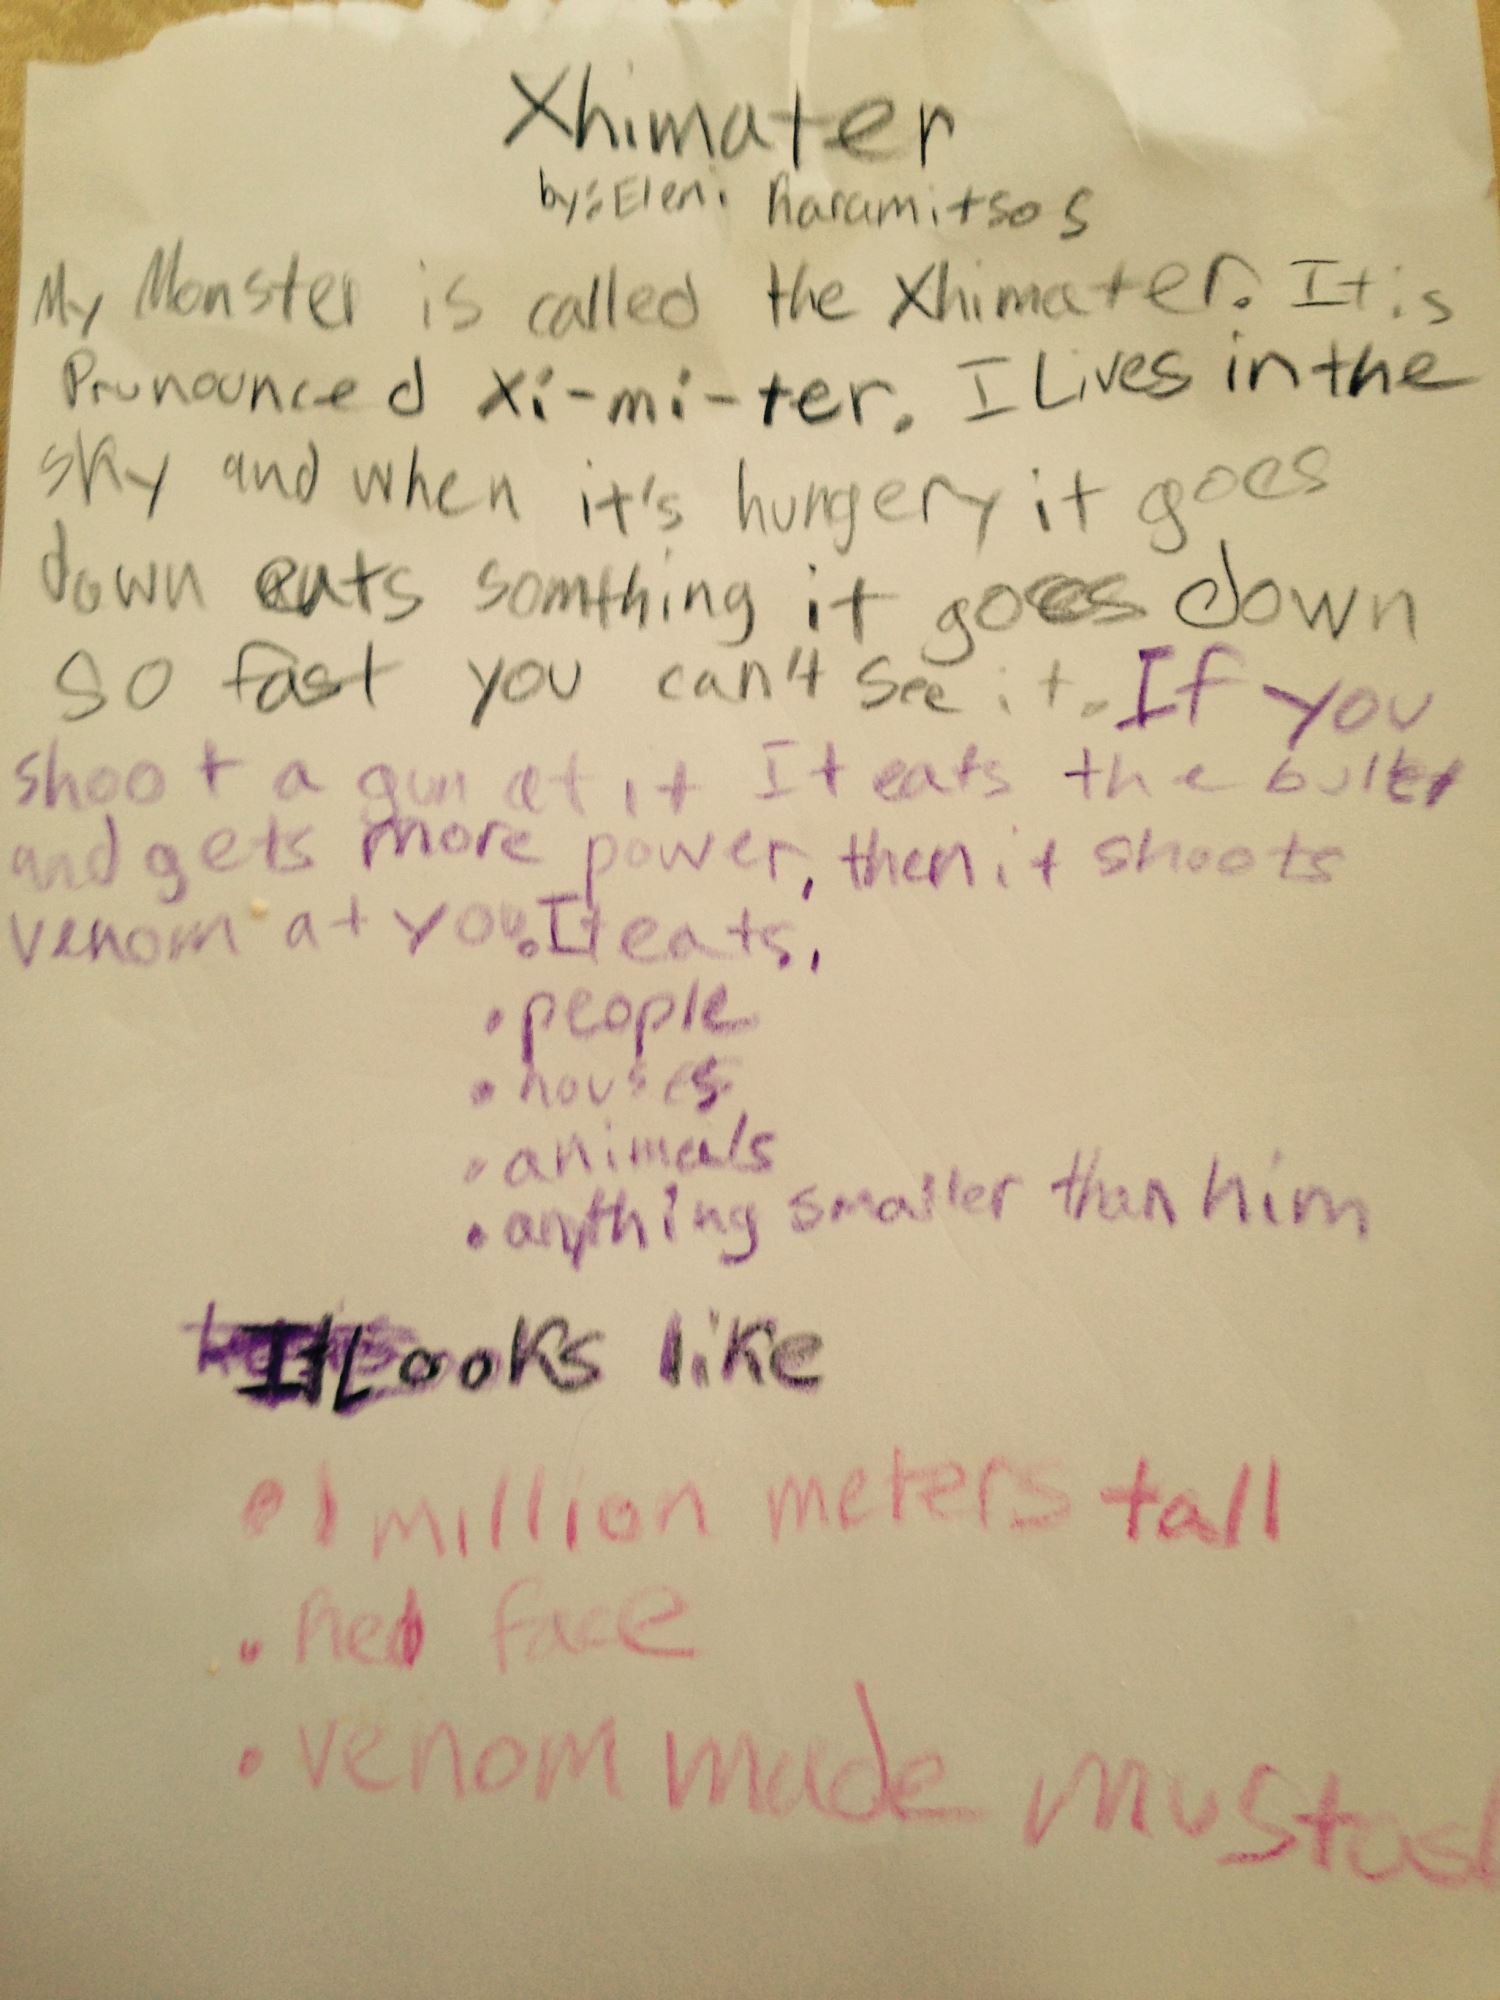 Xhimater
by: Eleni Karamitsos
My Monster is called the Xhimater. It is
Prunounced Xi-mi-ter. I Lives in the
sky and when it's hungery it goes
down eats somthing it goes down
so fast you can't see it. If you
shoot a gun at it It eats the bullet
and gets more power, then it shoots
venom at you. It eats,
• people
• houses
• animals
• anything smaller than him
It Looks like
• 1 million meters tall
• Red face
• venom made mustash